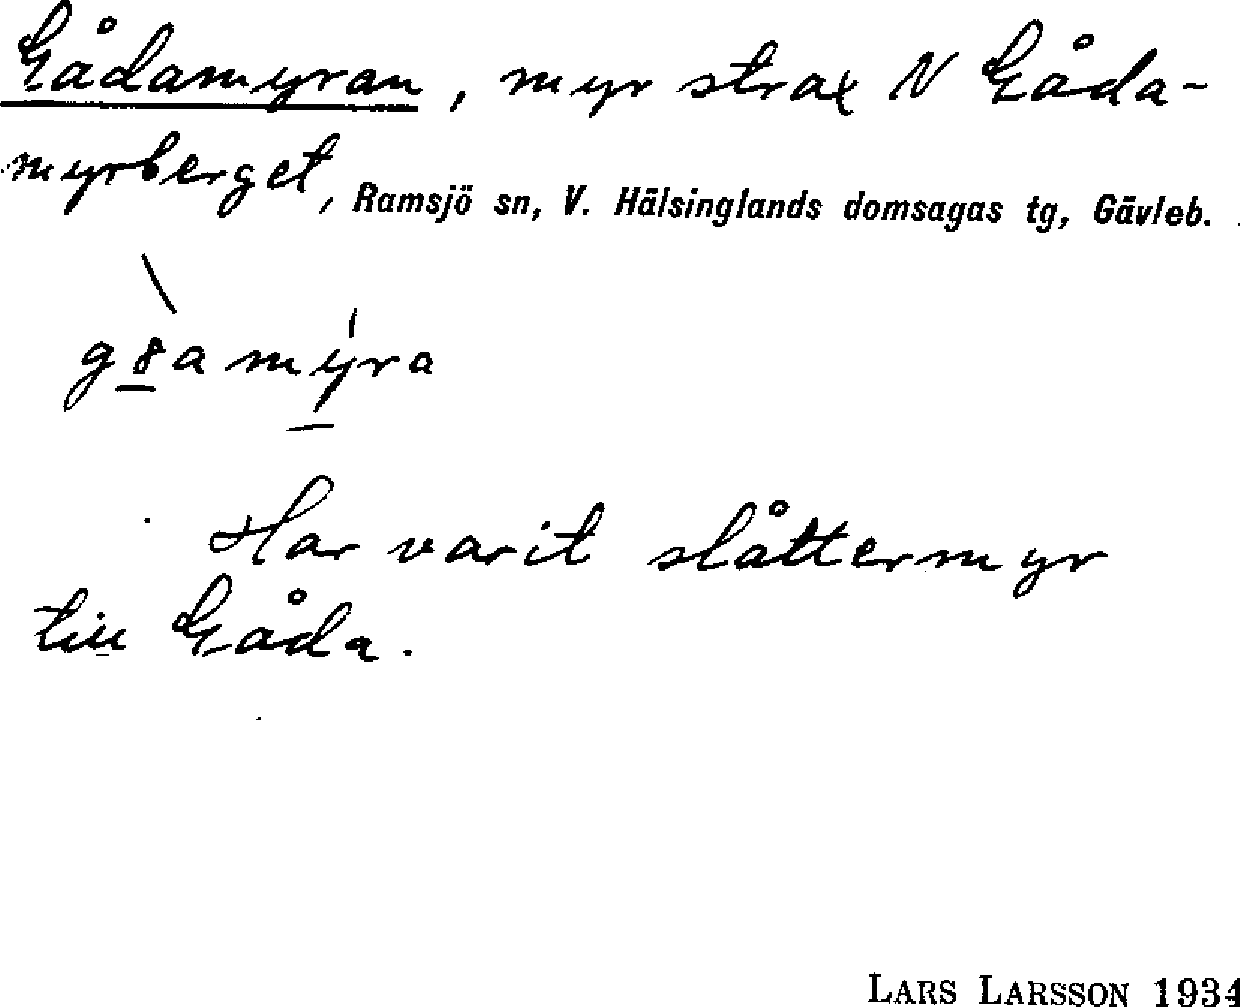 Gådamyran, myr strax N Gåda-
myrberget, Ramsjö sn, V. Hälsinglands domsagas tg, Gävleb.
g8amyra
Har varit slåttermyr
till Gåda.
LARS LARSSON 1934